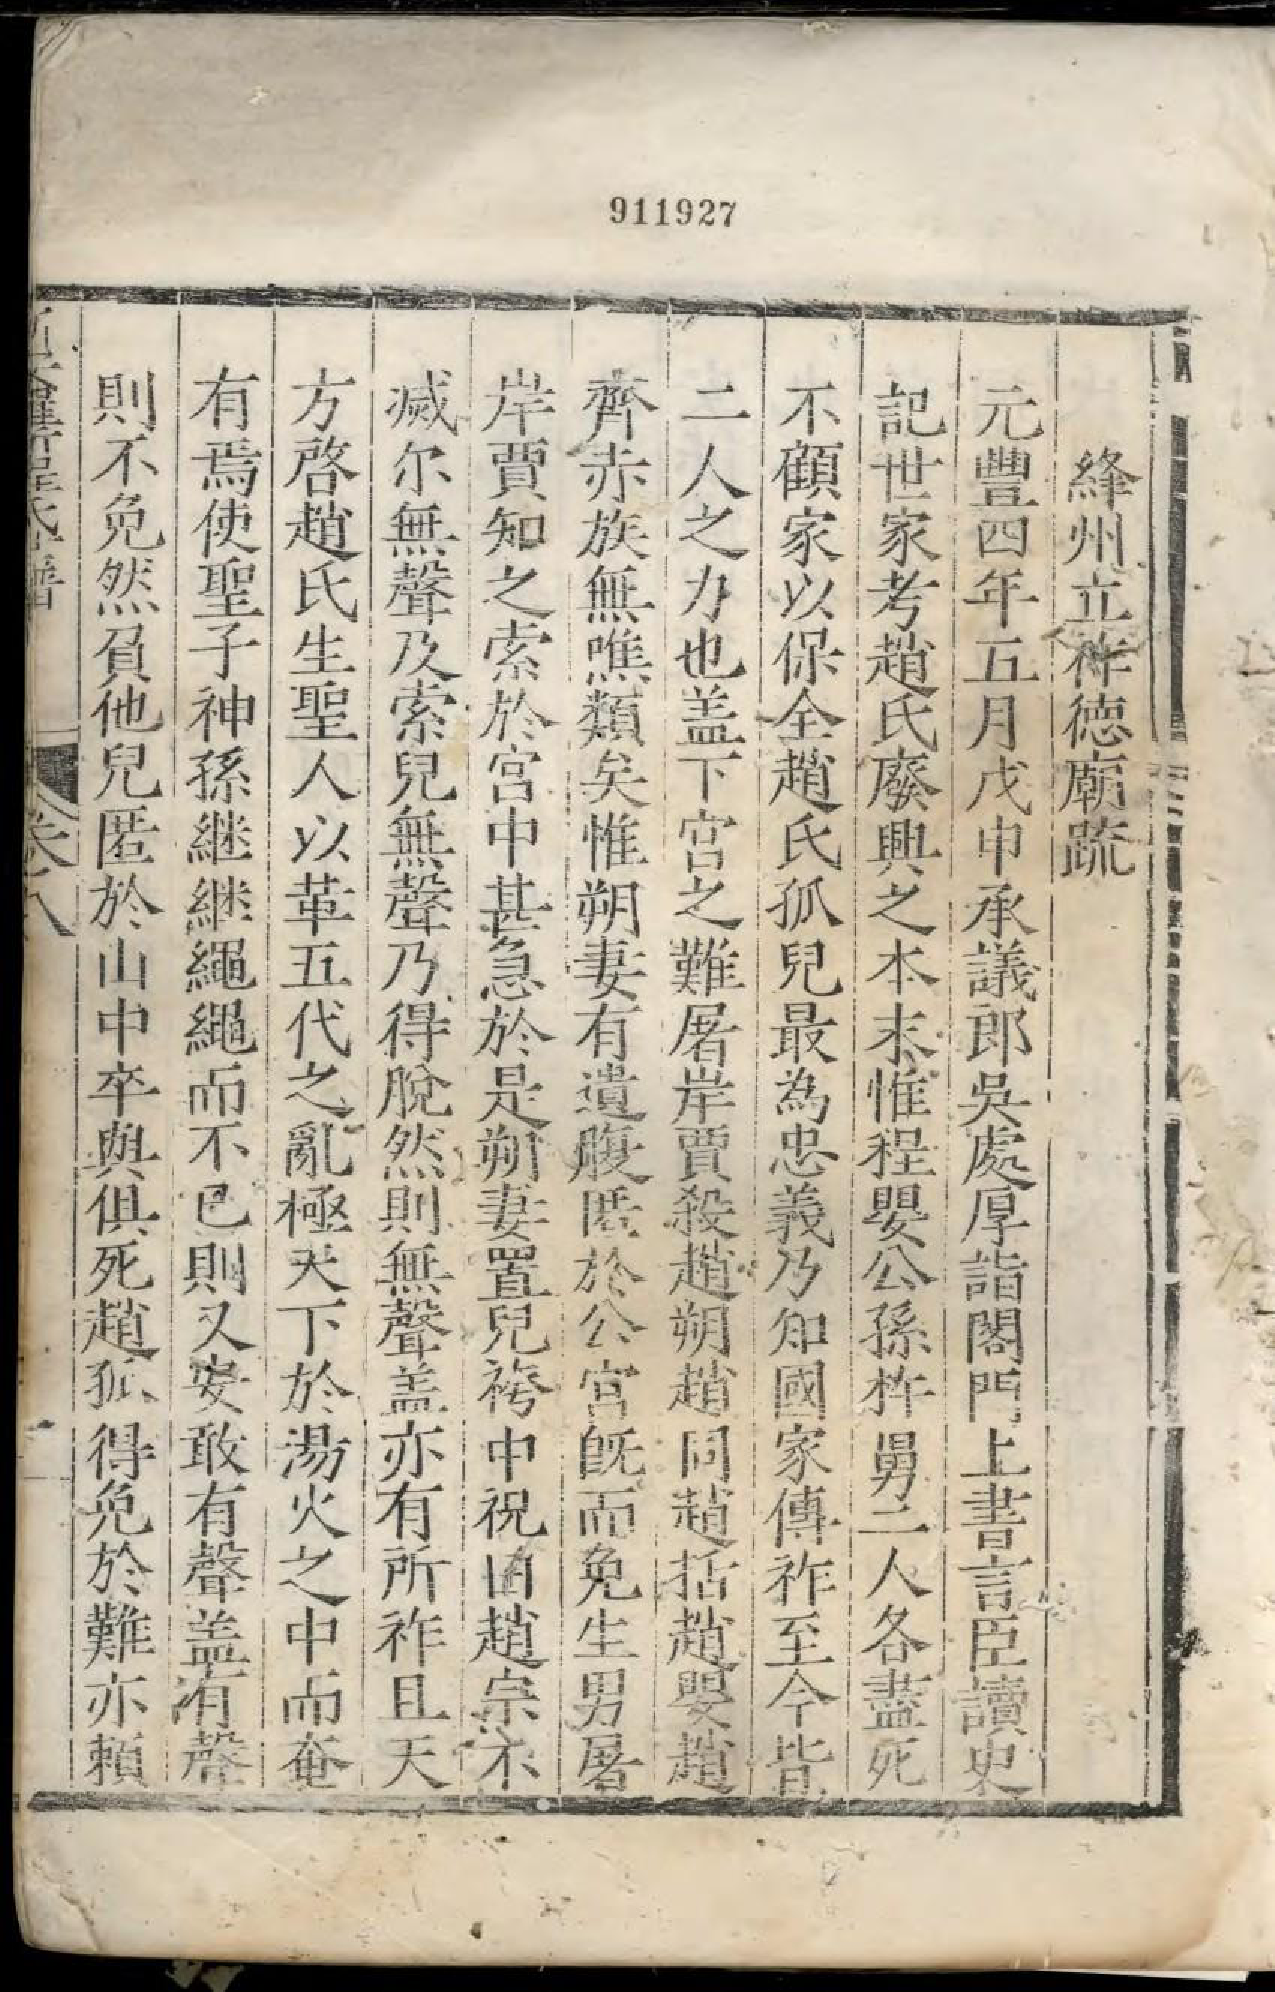 911927
絳州立祚德廟䟽
元豐四年五月戊申承議郎吳處厚詣閣門上書言臣讀史
記世家考趙氏廢興之本末惟程嬰公孫杵臼二人各盡死
不顧家以保全趙氏孤兒最為忠義乃知國家傳祚至今皆
二人之力也盖下宮之難屠岸賈殺趙朔趙同趙括趙嬰趙
齊赤族無噍類矣惟朔妻有遺腹匿於公宮旣而免生男屠
岸賈知之索於宮中甚急於是朔妻置兒袴中祝曰趙宗不
滅尔無聲及索兒無聲乃得脫然則無聲盖亦有所祚且天
方啓趙氏生聖人以革五代之亂極天下於湯火之中而奄
有焉使聖子神孫継継繩繩而不已則又安敢有聲盖有聲
則不免然負他兒匿於山中卒與俱死趙孤得免於難亦賴
程氏譜
卷八